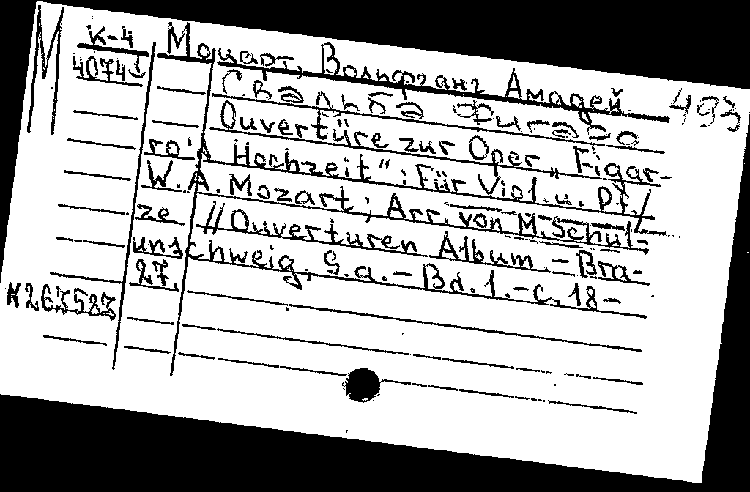 М К-4 Моцарт, Вольфганг Амадей 493
4074 Свадьба Фигаро
Ouvertüre zur Oper „Figar-
ro's Hochzeit“: Für Viol. u. Pf./
W. A. Mozart; Arr. von M. Schul-
ze // Ouverturen Album. – Bra-
unschweig, S. a. – Bd. 1. – С. 18–
27.
N263583